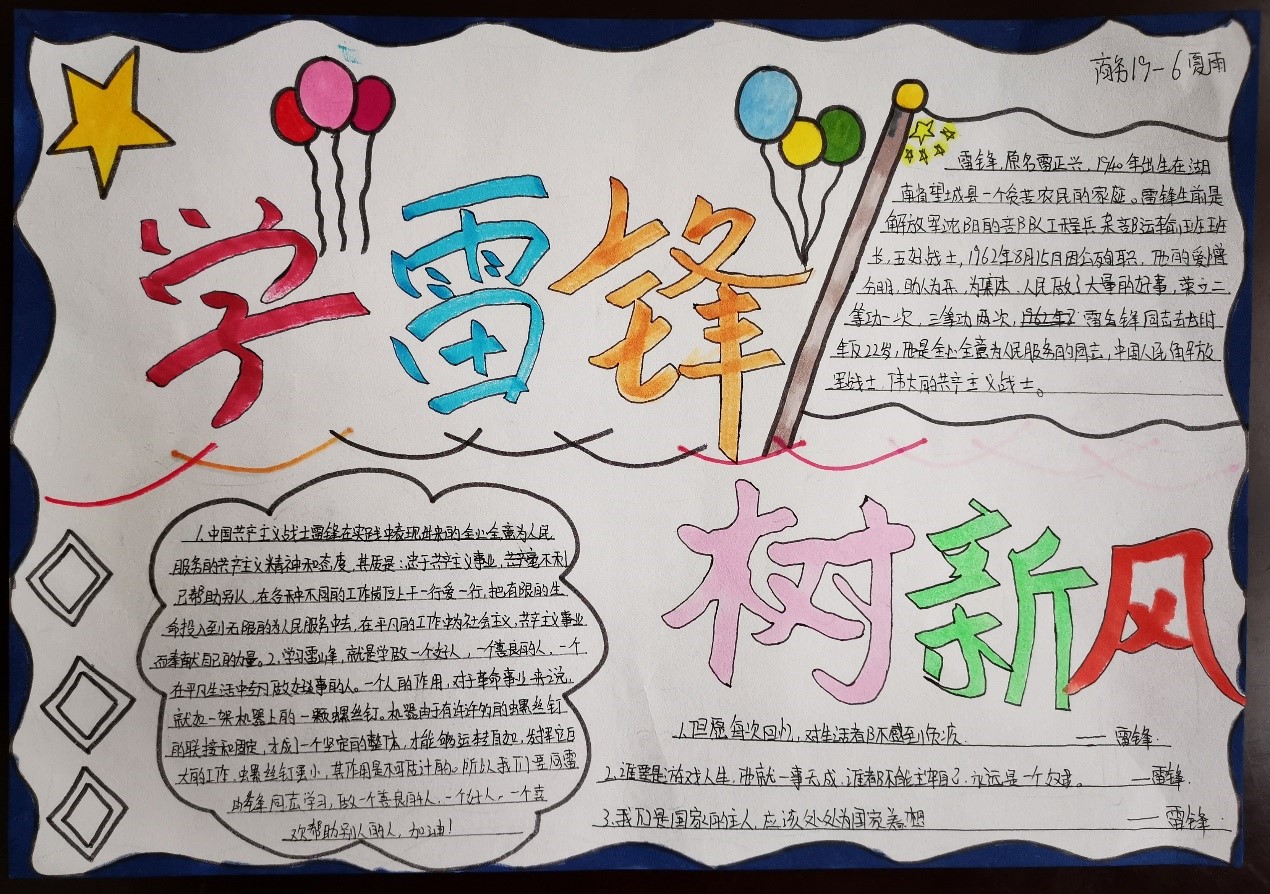 商务19-6 夏雨
学雷锋
雷锋，原名雷正兴，1940年出生在湖
南省望城县一个贫苦农民的家庭。雷锋生前是
解放军沈阳的部队工程兵某部运输班班
长，五好战士，1962年8月15日因公殉职，他的爱憎
分明，助人为乐，为集体、人民做了大量的好事，荣立二
等功一次，三等功两次，雷锋同志去世时
年仅22岁，他是全心全意为人民服务的同志，中国人民解放
军战士，伟大的共产主义战士。
1.中国共产主义战士雷锋在实践中表现出来的全心全意为人民
服务的共产主义精神和态度，其质是：忠于共产主义事业，不利
己帮助别人，在各种不同的工作岗位上干一行爱一行，把有限的生
命投入到无限的为人民服务中去，在平凡的工作中为社会主义，共产主义事业
而奉献自己的力量。2.学习雷锋，就是学做一个好人，一个善良的人，一个
在平凡生活中做好事的人。一个人的作用，对于革命事业来说，
就如一架机器上的一颗螺丝钉。机器由于有许许多的螺丝钉
的联接和固定，才成了一个坚定的整体，才能够运转自如，发挥它巨
大的工作，螺丝钉虽小，其作用是不可估计的。所以我们要向雷
锋同志学习，做一个善良的人，一个好人，一个喜
欢帮助别人的人，加油！
树新风
1.但愿每次回忆，对生活都不感到负疚 —— 雷锋.
2.谁要是游戏人生，他就一事无成，谁都不能主宰自己，永远是一个奴隶。 —雷锋.
3.我们是国家的主人，应该处处为国家着想 —— 雷锋.